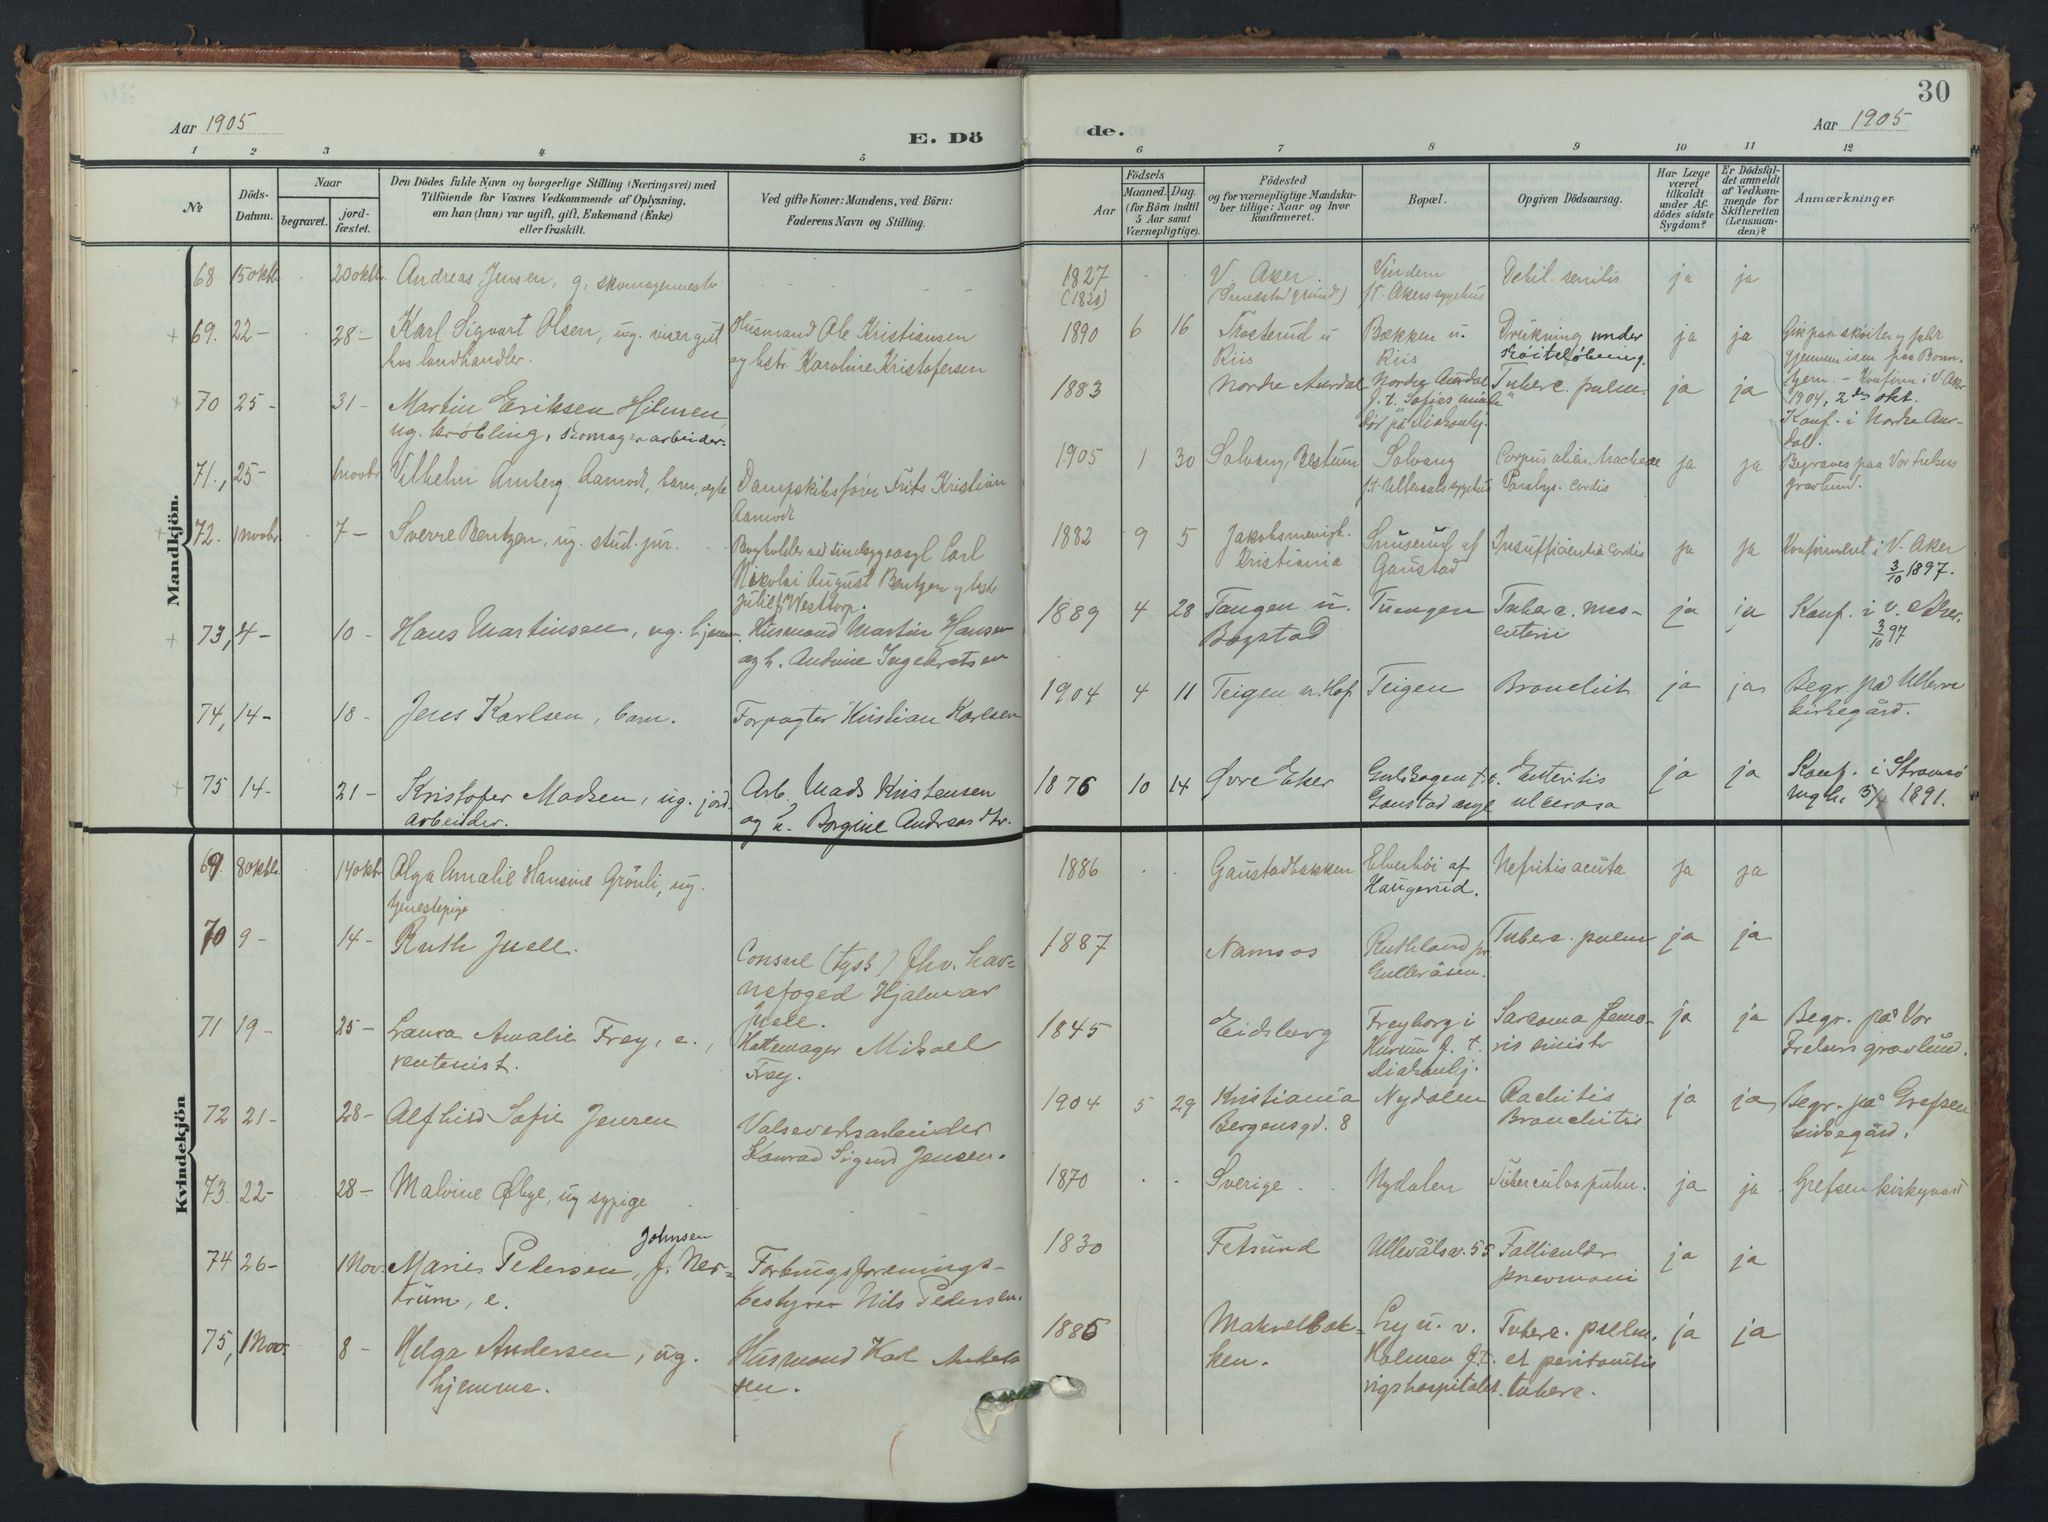 30
Aar 1905
E. Dö
de.
Aar 1905
1 2 3 4 5 6 7 8 9 10 11 12
№
Döds-
Datum.
Naar
begravet.
jord-
fæstet.
Den Dödes fulde Navn og borgerlige Stilling (Næringsvei) med
Tilföiende for Voxnes Vedkommende af Oplysning,
om han (hun) var ugift, gift, Enkemand (Enke)
eller fraskilt.
Ved gifte Koner: Mandens, ved Börn:
Faderens Navn og Stilling.
Födsels
Aar
Maaned. Dag.
(for Börn indtil
5 Aar samt
Værnepligtige).
Födested
og for værnepligtige Mandska-
ber tillige: Naar og hvor
konfirmeret.
Bopæl.
Opgiven Dödsaarsag.
Har Læge
været
tilkaldt
under Af-
dödes sidste
Sygdom?
Er Dödsfal-
det anmeldt
af Vedkom-
mende for
Skifteretten
(Lensman-
den)?
Anmærkninger
Mandkjön.
68 15 oktbr 20 oktbr Andreas Jensen, g, skomagermester
1827 V. Aker. Vindern Debil. senilis ja ja
(1820) (Smedstad grund) f.t. Akers sygehus
69. 22- 28- Karl Sigvart Olsen, ug. visergut Husmand Ole Kristiansen
hos landhandler. og hstr Karoline Kristofersen
1890 6 16 Trosterud u Bækken u. Drukning under ja ja Gik paa skøiter og faldt
Riis Riis skøiteløbning. gjennem isen paa Bonn-
tjern. - Konfirm i V Aker
1904, 2den okt.
70 25- 31- Martin Eriksen Hilmen,
ug. krøbling, skomagerarbeider.
1883 Nordre Aurdal Nordre Aurdal Tuberc. pulm. ja ja
f. t. Sofies minde"
død på Diakonhj.
Konf. i Nordre Aur-
dal.
71., 25- 1 novbr Vilhelm Amberg Aamodt, barn, ægte Dampskibsfører Frits Kristian
Aamodt
1905 1 30 Solvang, Bestum Solvang Corpus alien. tracheae ja ja Begraves paa Vor Frelsers
f.t. Ullevaals sygehus Paralys. cordis gravlund.
72. 1 novbr 7- Sverre Bentzen, ug. stud. jur. Bogholder ved sindssygeasyl Carl
Nikolai August Bentzen og hstr
Julie f. Westtorp.
1882 9 5 Jakobsmenigh. Smiserud af Insufficientia cordis ja ja Konfirmeret i V. Aker
Kristiania Gaustad 3/10 1897.
73, 4- 10- Hans Martinsen, ug. hjem. Husmand Martin Hansen
og h. Andrine Ingebretsen
1889 4 28 Tangen u. Tuengen Tuberc. mes- ja ja Konf. i V. Aker.
Bogstad enterii 3/10 97
74, 14- 18- Jens Karlsen, barn. Forpagter Kristian Karlsen
1904 4 11 Teigen u. Hof. Teigen Bronchit. ja ja Begr. på Ullern
kirkegård.
75 14- 21- Kristofer Madsen, ug. jord- Arb. Mads Kristensen
arbeider. og h. Borgine Andreasdtr.
1876 10 14 Øvre Eker Gulskogen f.t. Enteritis ja ja Konf. i Strømsø
Gaustad asyl ulcerosa 1891.
Kvindekjön
69 8 oktbr. 14 oktbr Olga Amalie Hansine Grönli, ug.
tjenestepige
1886 Gaustadbakken Elverhöi af Nefritis acuta ja ja
Haugerud.
70 9- 14- Ruth Juell. Consul (tysk) fhv. hav-
nefoged Hjalmar
Juell.
1887 Namsos Ruthland pr Tuberc. pulm ja ja
Gulleråsen.
71 19- 25- Laura Amalie Frey, e., Hattemager Mikael
rentenist. Frey.
1845 Eidsberg Freyborg i Sarcoma femo- ja ja Begr. på Vor
Hurum f. t. ris sinistr Frelsers gravlund.
Diakonhj.
72 21- 28- Alfhild Sofie Jensen Valseverksarbeider
Konrad Sigurd Jensen.
1904 5 29 Kristiania Nydalen Rachitis ja ja Begr. på Grefsen
Bergensgd. 8 Bronchitis kirkegård.
73. 22- 28- Malvine Øbye, ug sypige
1870 Sverige Nydalen Tuberculos pulm. ja ja Grefsen kirkgaard
Johnsen
74 26- 1 Nov. Marie Pedersen, f. Ner-
krum, e. Forbrugsforenings-
bestyrer Nils Pedersen.
1830 Fetsund Ullevålsv. 55 Follikulær ja ja
pnevmoni
75, 1 Nov. 8- Helga Andersen, ug. Husmand Karl Ander-
hjemme. sen.
1885 Makrelbak- Ly u. v. Tuberc. pulm. ja ja
ken. Holmen f.t. et peritonitis
rigshospitalet. tuberc.